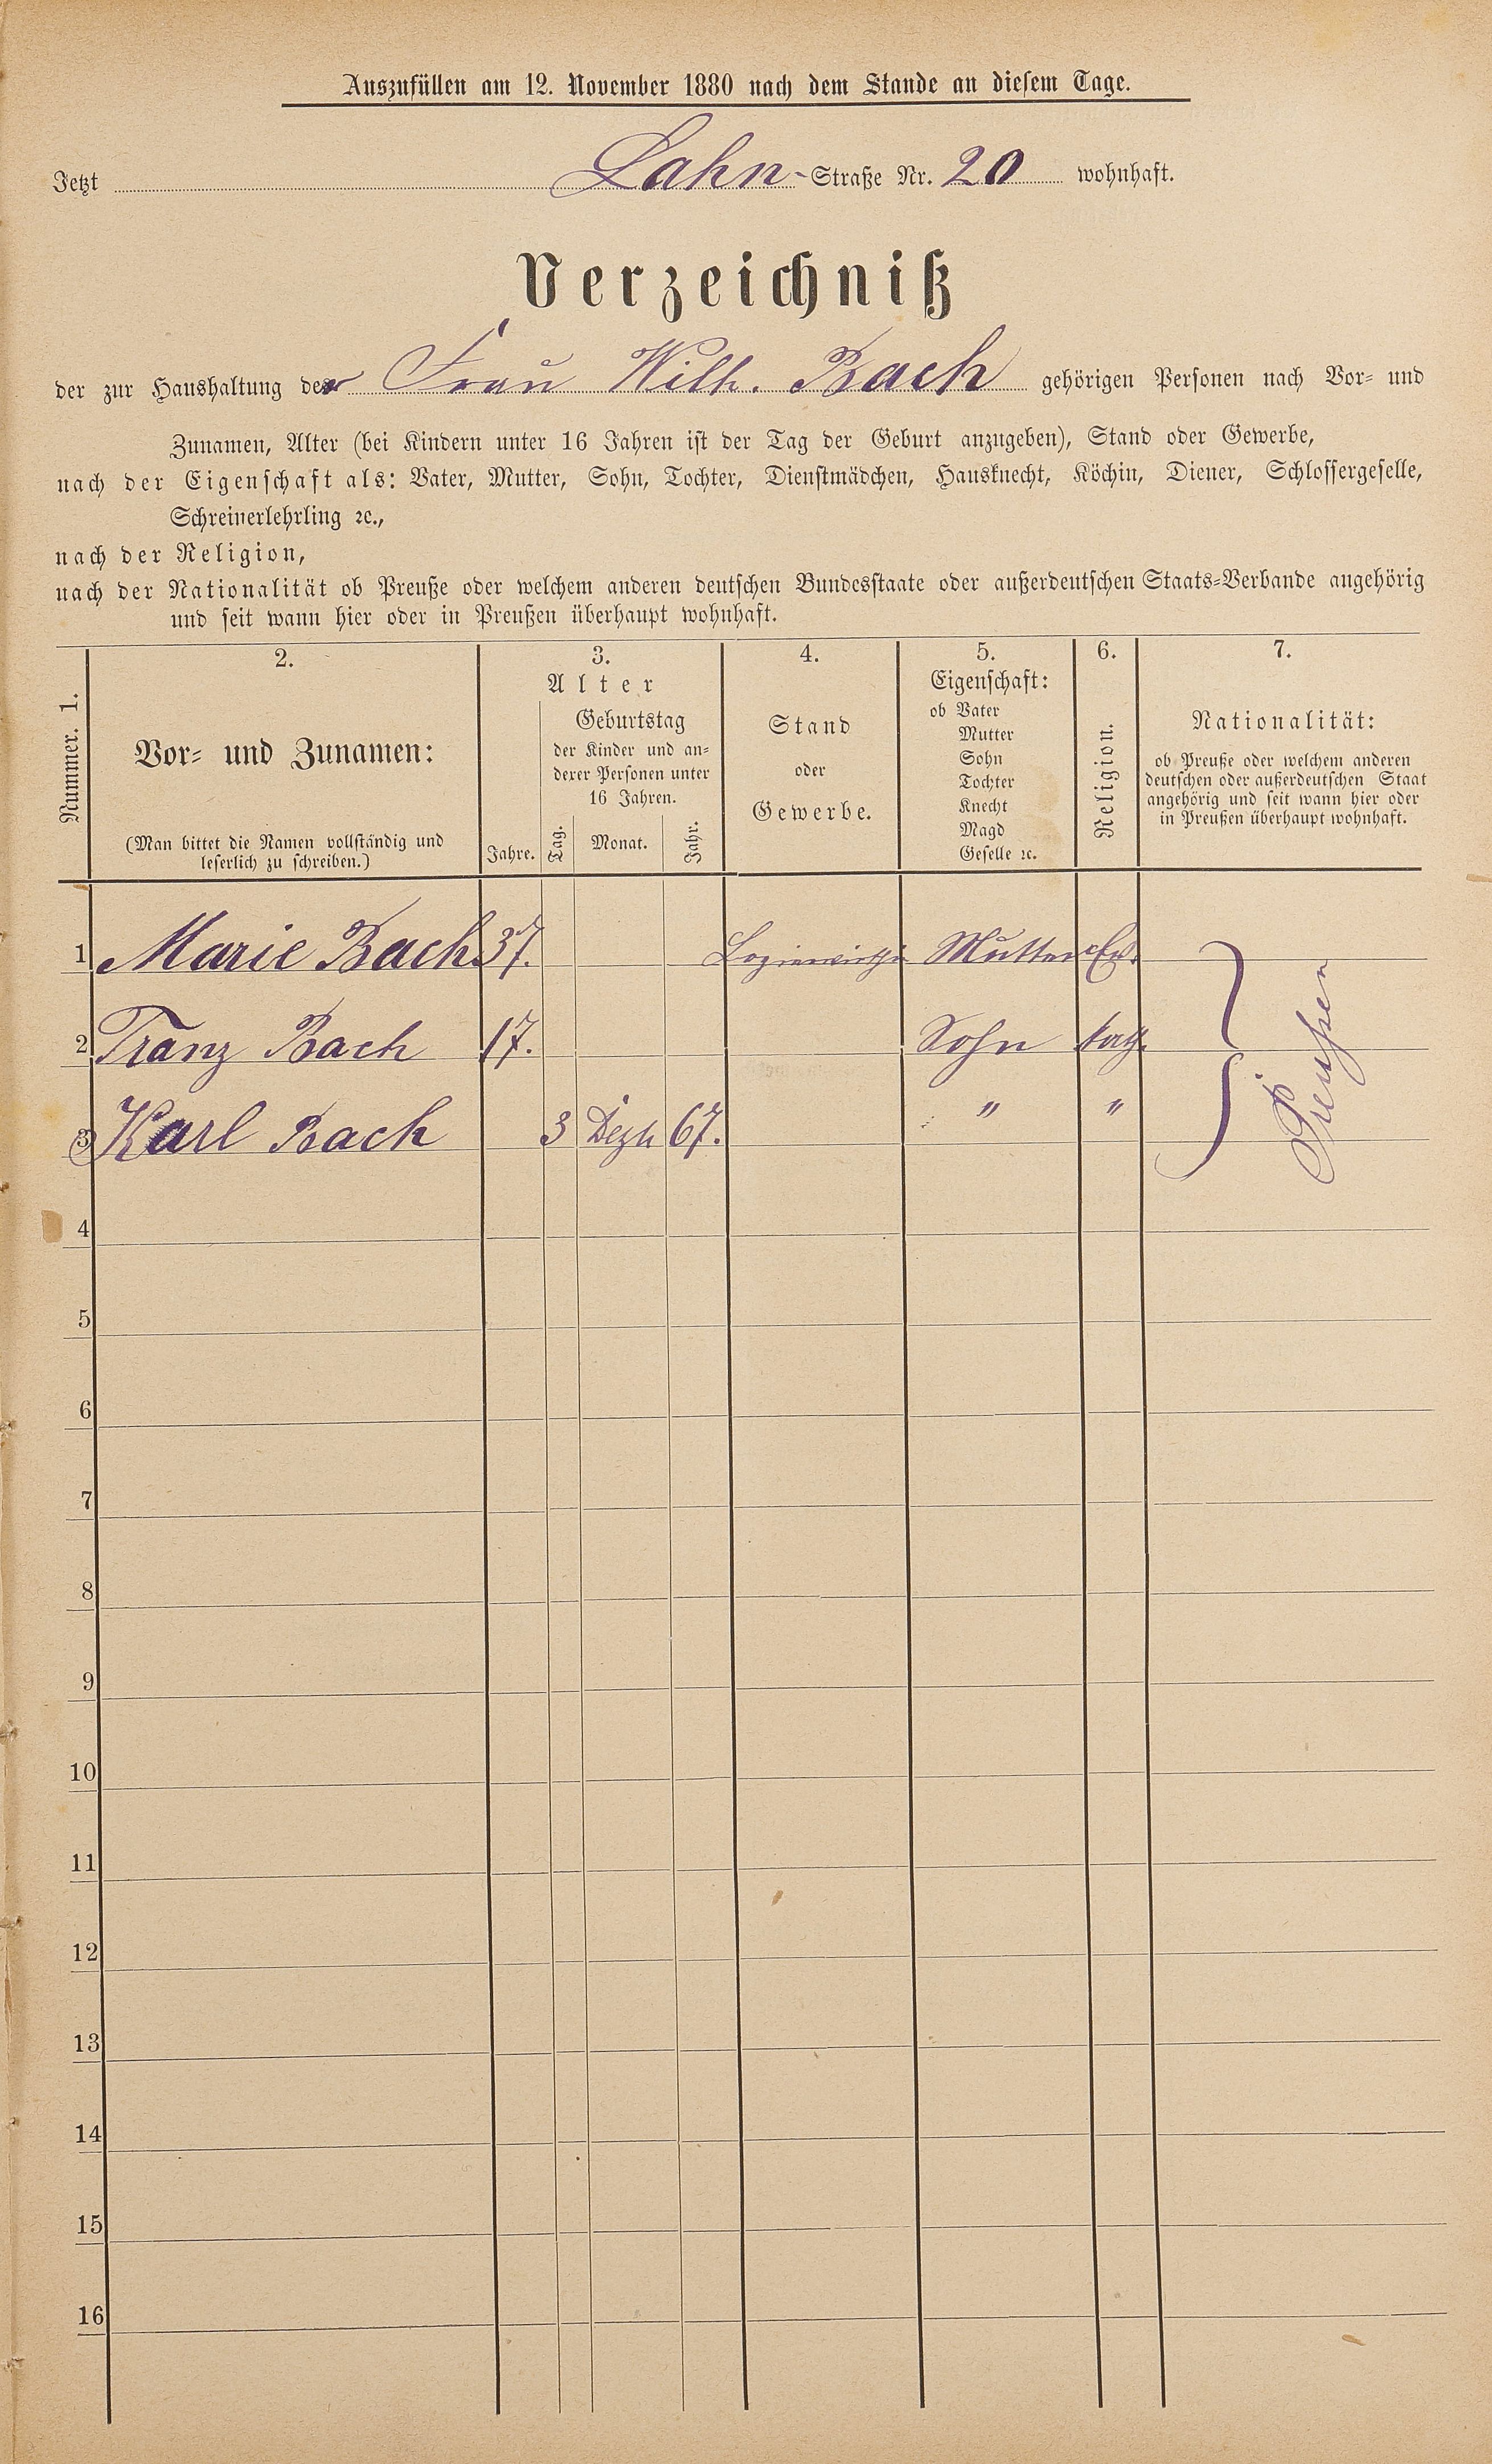 Auszufüllen am 12. November 1880 nach dem Stande an diesem Tage.
Jetzt Lahn-Straße Nr. 20 wohnhaft.
Verzeichniß
der zur Haushaltung der Frau Wilh. Bach gehörigen Personen nach Vor- und
Zunamen, Alter (bei Kindern unter 16 Jahren ist der Tag der Geburt anzugeben), Stand oder Gewerbe,
nach der Eigenschaft als: Vater, Mutter, Sohn, Tochter, Dienstmädchen, Hausknecht, Köchin, Diener, Schlossergeselle,
Schreinerlehrling ꝛc.,
nach der Religion,
nach der Nationalität ob Preuße oder welchem anderen deutschen Bundesstaate oder außerdeutschen Staats-Verbande angehörig
und seit wann hier oder in Preußen überhaupt wohnhaft.
Nummer. 1.
2.
Vor- und Zunamen:
(Man bittet die Namen vollständig und
leserlich zu schreiben.)
3.
Alter
Jahre.
Geburtstag
der Kinder und an-
derer Personen unter
16 Jahren.
Tag. Monat. Jahr.
4.
Stand
oder
Gewerbe.
5.
Eigenschaft:
ob Vater
Mutter
Sohn
Tochter
Knecht
Magd
Geselle ꝛc.
6.
Religion.
7.
Nationalität:
ob Preuße oder welchem anderen
deutschen oder außerdeutschen Staat
angehörig und seit wann hier oder
in Preußen überhaupt wohnhaft.
1 Marie Bach 37. Mutter Ev.
2 Franz Bach 17. Sohn kath.
3 Karl Bach 3 Dezb 67. " "
Preußen
4
5
6
7
8
9
10
11
12
13
14
15
16